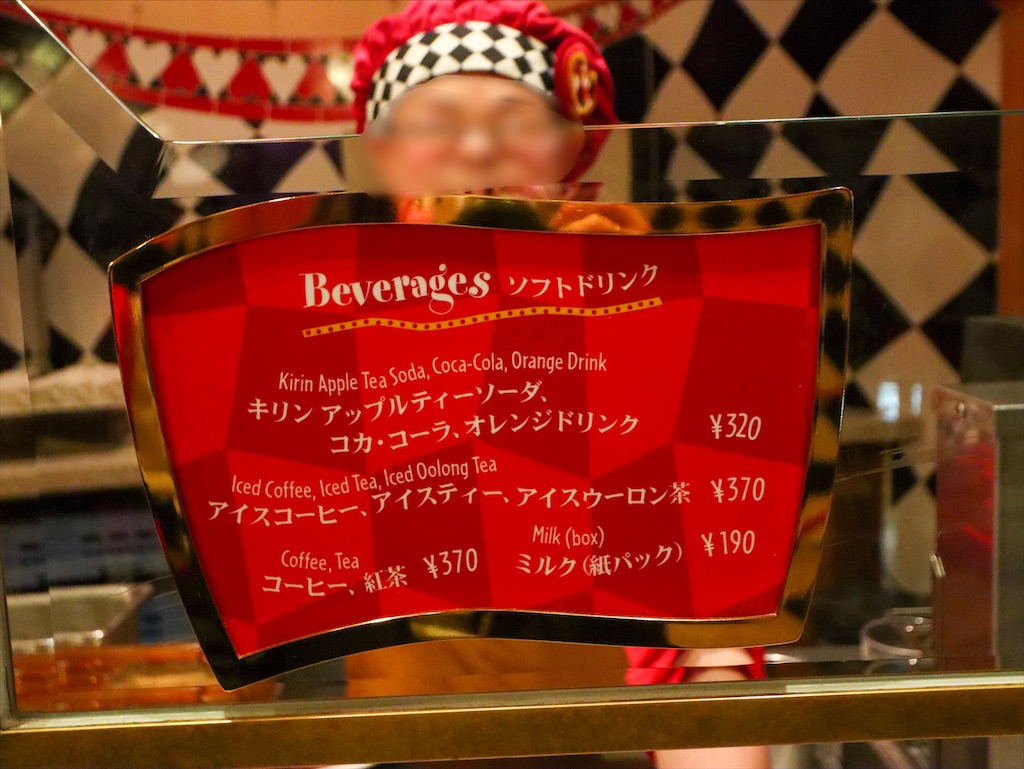 Beverages ソフトドリンク
Kirin Apple Tea Soda, Coca-Cola, Orange Drink
キリン アップルティーソーダ、
コカ・コーラ、オレンジドリンク ¥320
Iced Coffee, Iced Tea, Iced Oolong Tea
アイスコーヒー、アイスティー、アイスウーロン茶 ¥370
Coffee, Tea
コーヒー、紅茶 ¥370
Milk (box)
ミルク（紙パック） ¥190